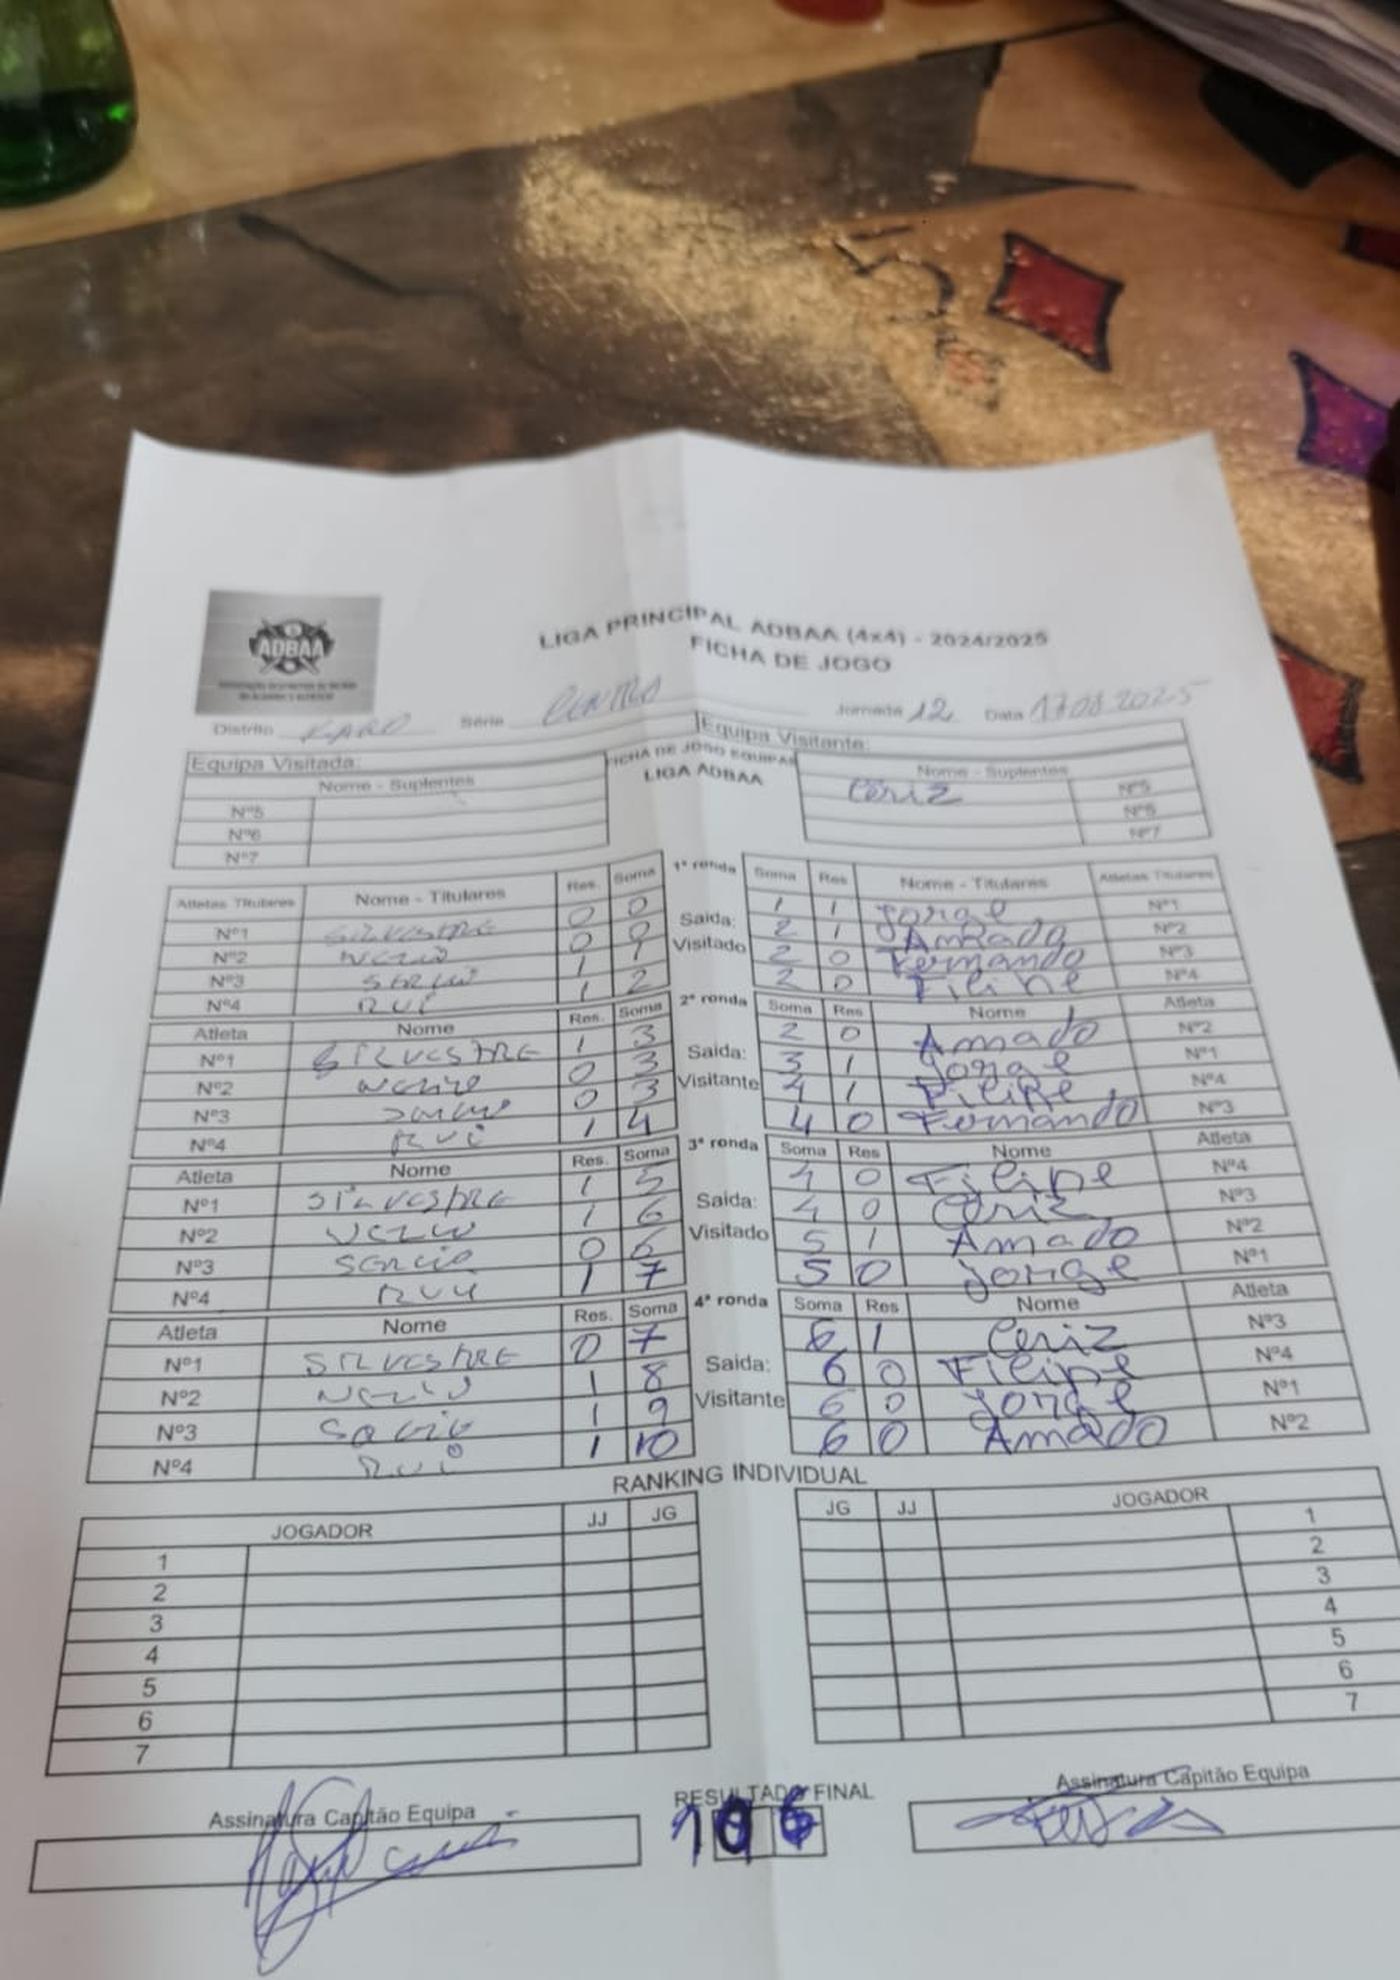 ADBAA
LIGA PRINCIPAL ADBAA (4x4) - 2024/2025
FICHA DE JOGO
Distrito FARO Série CENTRO Jornada 12 Data
Equipa Visitada: FICHA DE JOGO EQUIPAS Equipa Visitante:
Nome - Suplentes LIGA ADBAA Nome - Suplentes
Nº5 Ceriz Nº5
Nº6 Nº6
Nº7 Nº7
Atletas Titulares Nome - Titulares Res. Soma 1ª ronda Soma Res Nome - Titulares Atletas Titulares
Nº1 SILVESTRE 0 0 Saida: 1 1 Jorge Nº1
Nº2 0 0 Visitado 2 1 Amado Nº2
Nº3 1 1 2 0 Fernando Nº3
Nº4 RUI 1 2 2 0 Filipe Nº4
Atleta Nome Res. Soma 2ª ronda Soma Res Nome Atleta
Nº1 SILVESTRE 1 3 Saida: 2 0 Amado Nº2
Nº2 0 3 Visitante 3 1 Jorge Nº1
Nº3 0 3 4 1 Filipe Nº4
Nº4 RUI 1 4 4 0 Fernando Nº3
Atleta Nome Res. Soma 3ª ronda Soma Res Nome Atleta
Nº1 SILVESTRE 1 5 Saida: 4 0 Filipe Nº4
Nº2 1 6 Visitado 4 0 Ceriz Nº3
Nº3 0 6 5 1 Amado Nº2
Nº4 RUI 1 7 5 0 Jorge Nº1
Atleta Nome Res. Soma 4ª ronda Soma Res Nome Atleta
Nº1 SILVESTRE 0 7 Saida: 6 1 Ceriz Nº3
Nº2 1 8 Visitante 6 0 Filipe Nº4
Nº3 1 9 6 0 Jorge Nº1
Nº4 RUI 1 10 6 0 Amado Nº2
RANKING INDIVIDUAL
JOGADOR JJ JG JG JJ JOGADOR
1 1
2 2
3 3
4 4
5 5
6 6
7 7
Assinatura Capitão Equipa RESULTADO FINAL Assinatura Capitão Equipa
10 6